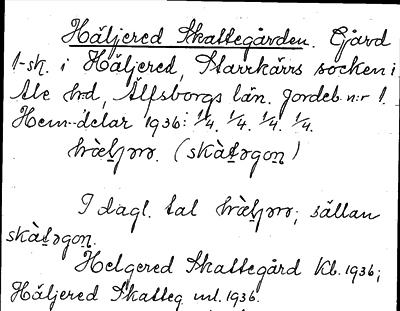 Häljered Skattegården. Gård
1 sk. i Häljered, Starrkärrs socken i
Ale hrd, Älfsborgs län. Jordeb. n:r 1.
Hem.-delar 1936: 1/4. 1/4. 1/4. 1/4.
I dagl. tal sällan
Helgered Skattegård Kb. 1936;
Häljered Skatteg. ml. 1936.